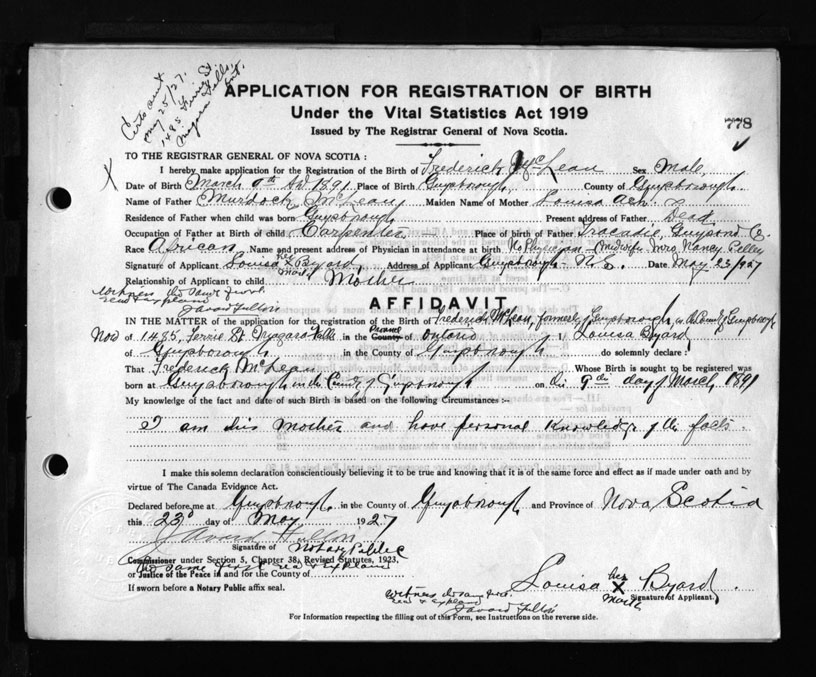 Certs sent
May 25/27.
1485 Ferrie St
Niagara Falls,
Ont.
APPLICATION FOR REGISTRATION OF BIRTH
Under the Vital Statistics Act 1919
Issued by The Registrar General of Nova Scotia.
778
TO THE REGISTRAR GENERAL OF NOVA SCOTIA :
I hereby make application for the Registration of the Birth of Frederick McLean Sex Male,
Date of Birth March 9th AD 1891 Place of Birth Guysborough, County of Guysborough
Name of Father Murdock McLean Maiden Name of Mother Louisa Ash
Residence of Father when child was born Guysborough Present address of Father Dead
Occupation of Father at Birth of child Carpenter Place of birth of Father Tracadie, Guysboro Co.
Race African Name and present address of Physician in attendance at birth No Physician - Midwife Mrs Nancy
Signature of Applicant Louisa her x mark Byard Address of Applicant Guysborough - N.S. Date May 23/1927
Relationship of Applicant to child Mother
Witness the same first
read & explained
J. Avard Fulton
AFFIDAVIT
IN THE MATTER of the application for the registration of Birth of Frederick McLean, formerly of Guysborough, in the County of Guysborough
Now of 1485, Ferrie St. Niagara Falls in the County Province of Ontario I Louisa Byard
of Guysborough in the County of Guysborough do solemnly declare :
That Frederick McLean Whose Birth is sought to be registered was
born at Guysborough in the County of Guysborough on the 9th day of March, 1891
My knowledge of the fact and date of such Birth is based on the following Circumstances :-
I am his Mother and have personal knowledge of the facts.
I make this solemn declaration conscientiously believing it to be true and knowing that it is of the same force and effect as if made under oath and by
virtue of The Canada Evidence Act.
Declared before me at Guysborough in the County of Guysborough and Province of Nova Scotia
this 23d day of May 1927
J. Avard Fulton
Signature of Notary Public
Commissioner under Section 5, Chapter 38, Revised Statutes, 1923,
the same first read & explained
or Justice of the Peace in and for the County of
If sworn before a Notary Public affix seal.
Witness the same first
read & explained
J. Avard Fulton
Louisa her x mark Byard.
Signature of Applicant
For Information respecting the filling out of this Form, see Instructions on the reverse side.